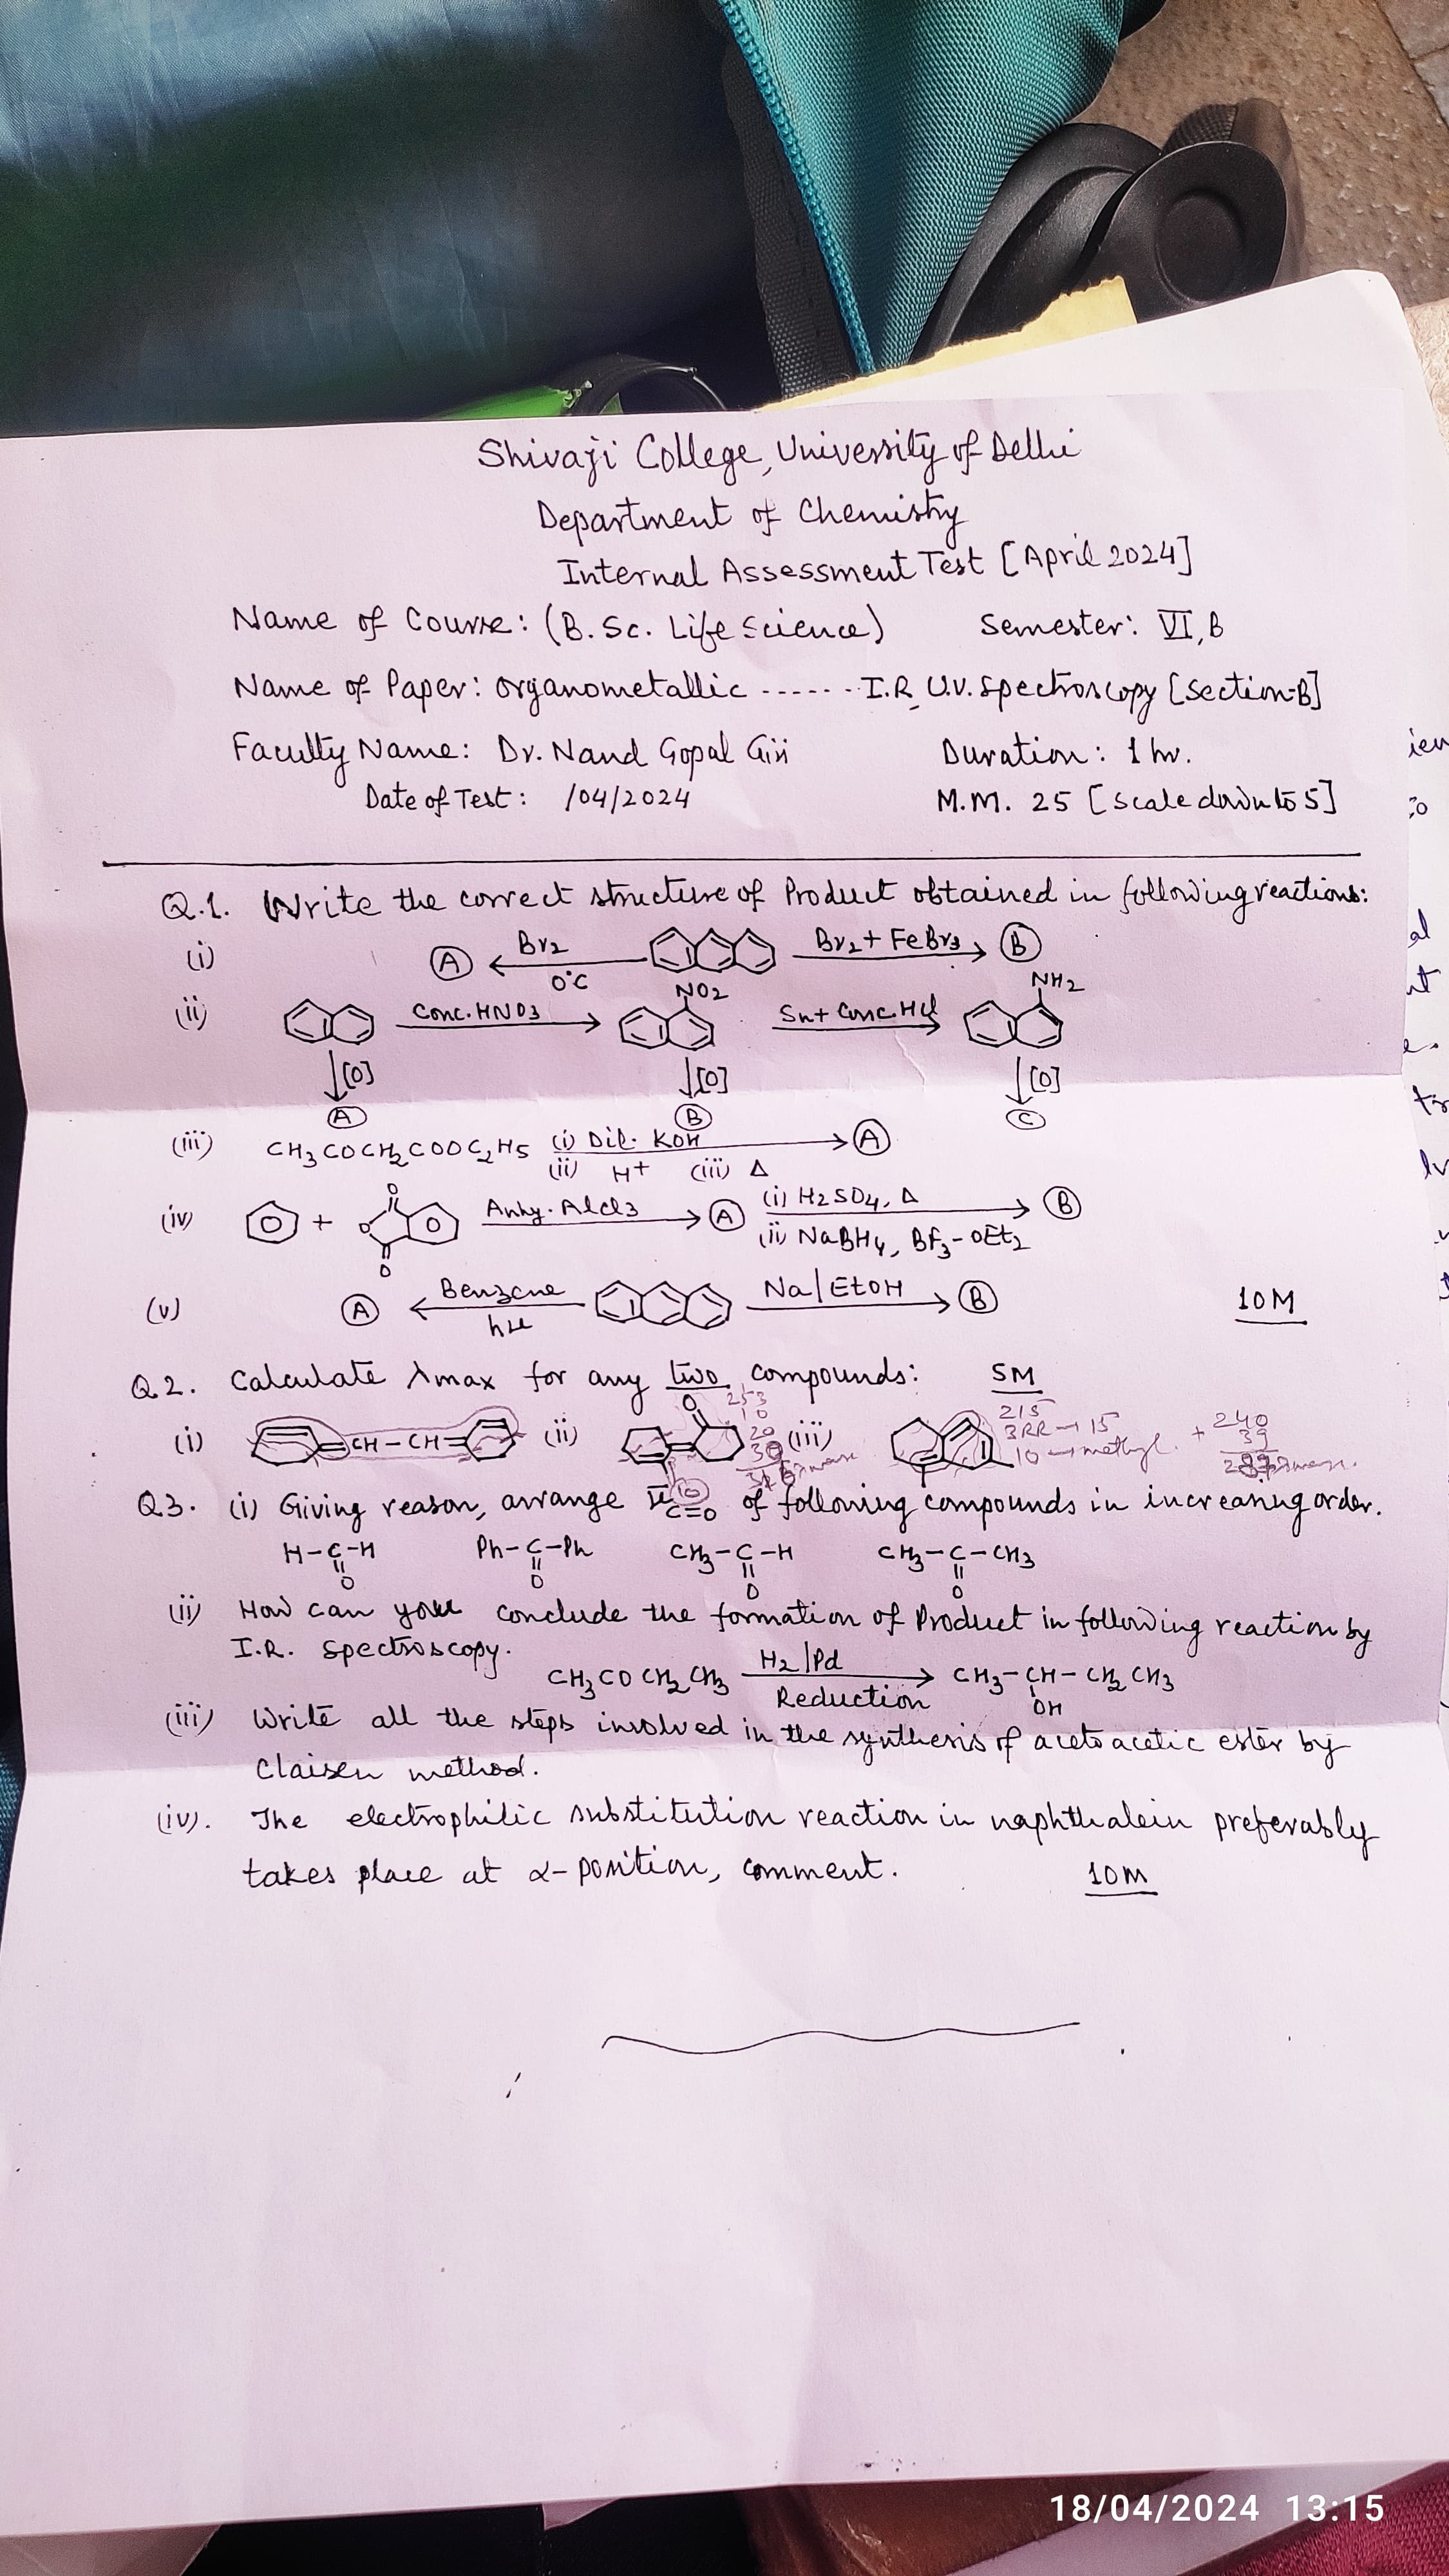 Shivaji College, University of Delhi
Department of Chemistry
Internal Assessment Test [April 2024]
Name of Course: (B.Sc. Life Science) Semester: VI, B
Name of Paper: Organometallic ------ I.R, U.V. Spectroscopy [Section-B]
Faculty Name: Dr. Nand Gopal Giri Duration: 1 hr.
Date of Test: /04/2024 M.M. 25 [Scale down to 5]
Q.1. Write the correct structure of Product obtained in following reactions:
(i) A Br2 0°C Br2 + FeBr3 B
(ii) Conc. HNO3 NO2 Sn + Conc. HCl NH2
[O] [O] [O]
A B C
(iii) CH3COCH2COOC2H5 (i) Dil. KOH (ii) H+ (iii) Δ A
(iv) + O O O Anhy. AlCl3 A (i) H2SO4, Δ (ii) NaBH4, BF3-OEt2 B
(v) A Benzene hν Na/EtOH B 10M
Q2. Calculate λmax for any two compounds: 5M
(i) =CH-CH= (ii) O (iii)
253
10
20
30
215
3RR → 15
10 → methyl
+ 240
39
Q3. (i) Giving reason, arrange ν̅ C=O of following compounds in increasing order.
H-C-H Ph-C-Ph CH3-C-H CH3-C-CH3
O O O O
(ii) How can you conclude the formation of Product in following reaction by
I.R. Spectroscopy.
CH3COCH2CH3 H2/Pd Reduction CH3-CH-CH2CH3
OH
(iii) Write all the steps involved in the synthesis of acetoacetic ester by
Claisen method.
(iv). The electrophilic substitution reaction in naphthalein preferably
takes place at α-position, comment. 10M
18/04/2024 13:15